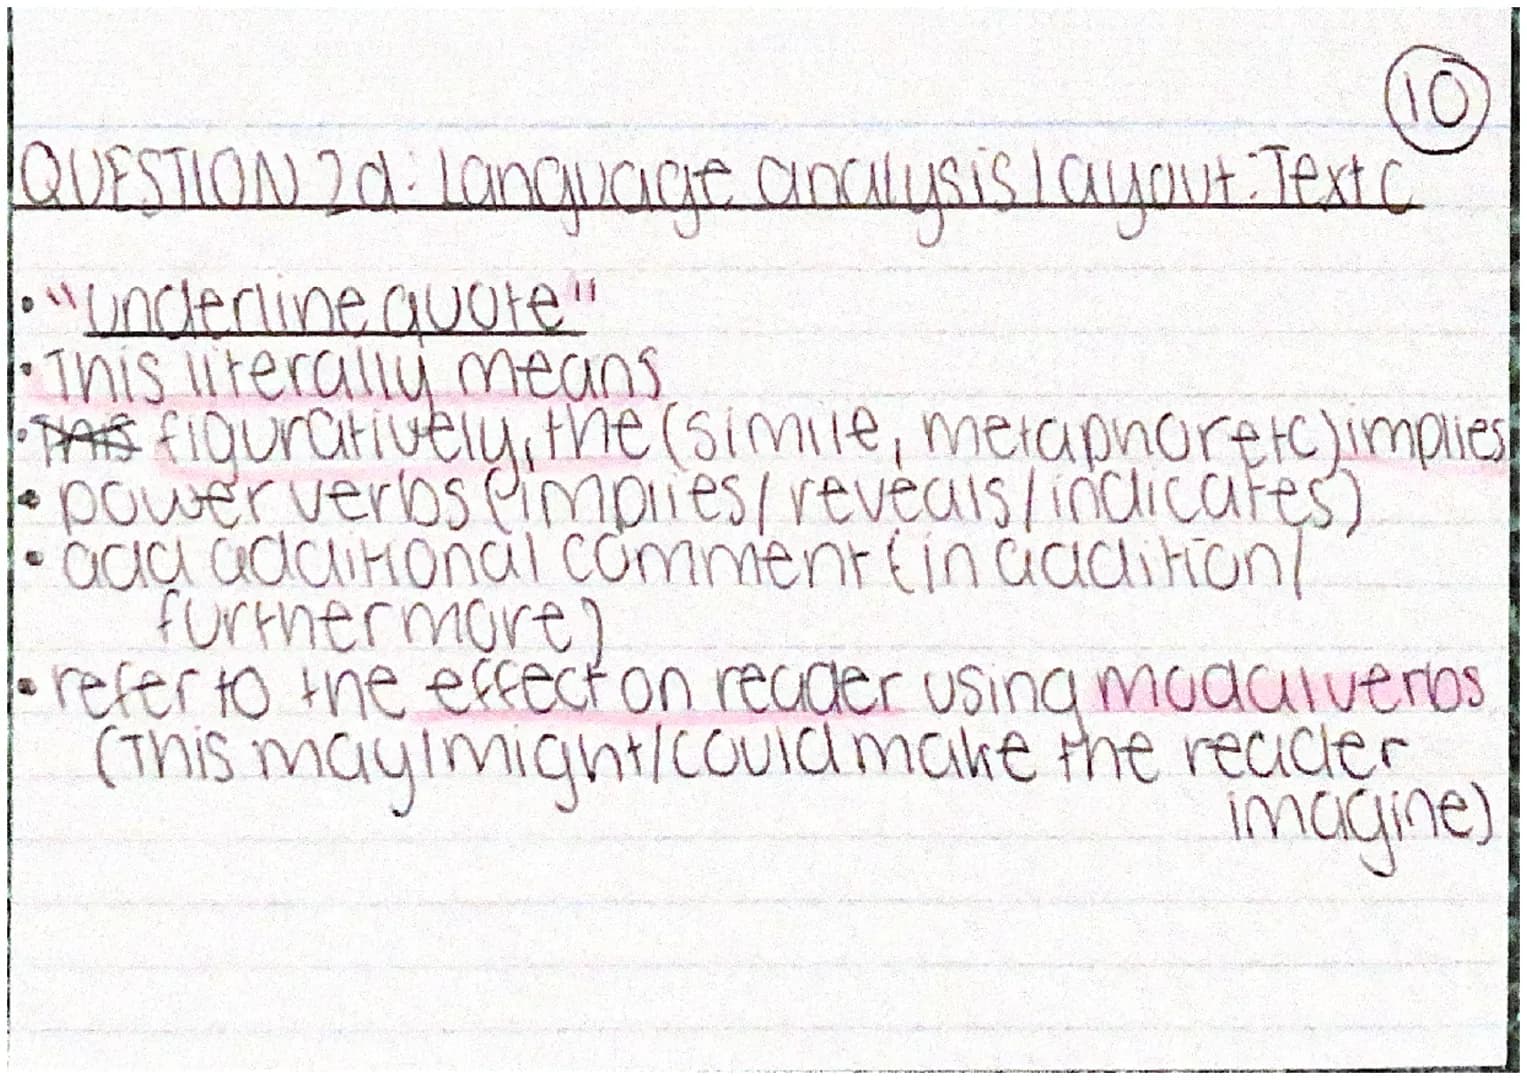 10
QUESTION 2d: Language analysis layout: Text C
• "underline quote"
• This literally means
• This figuratively, the (simile, metaphor etc) implies
• power verbs (implies / reveals / indicates)
• add additional comment (in addition /
furthermore)
• refer to the effect on reader using modal verbs
(This may/might/could make the reader
imagine)